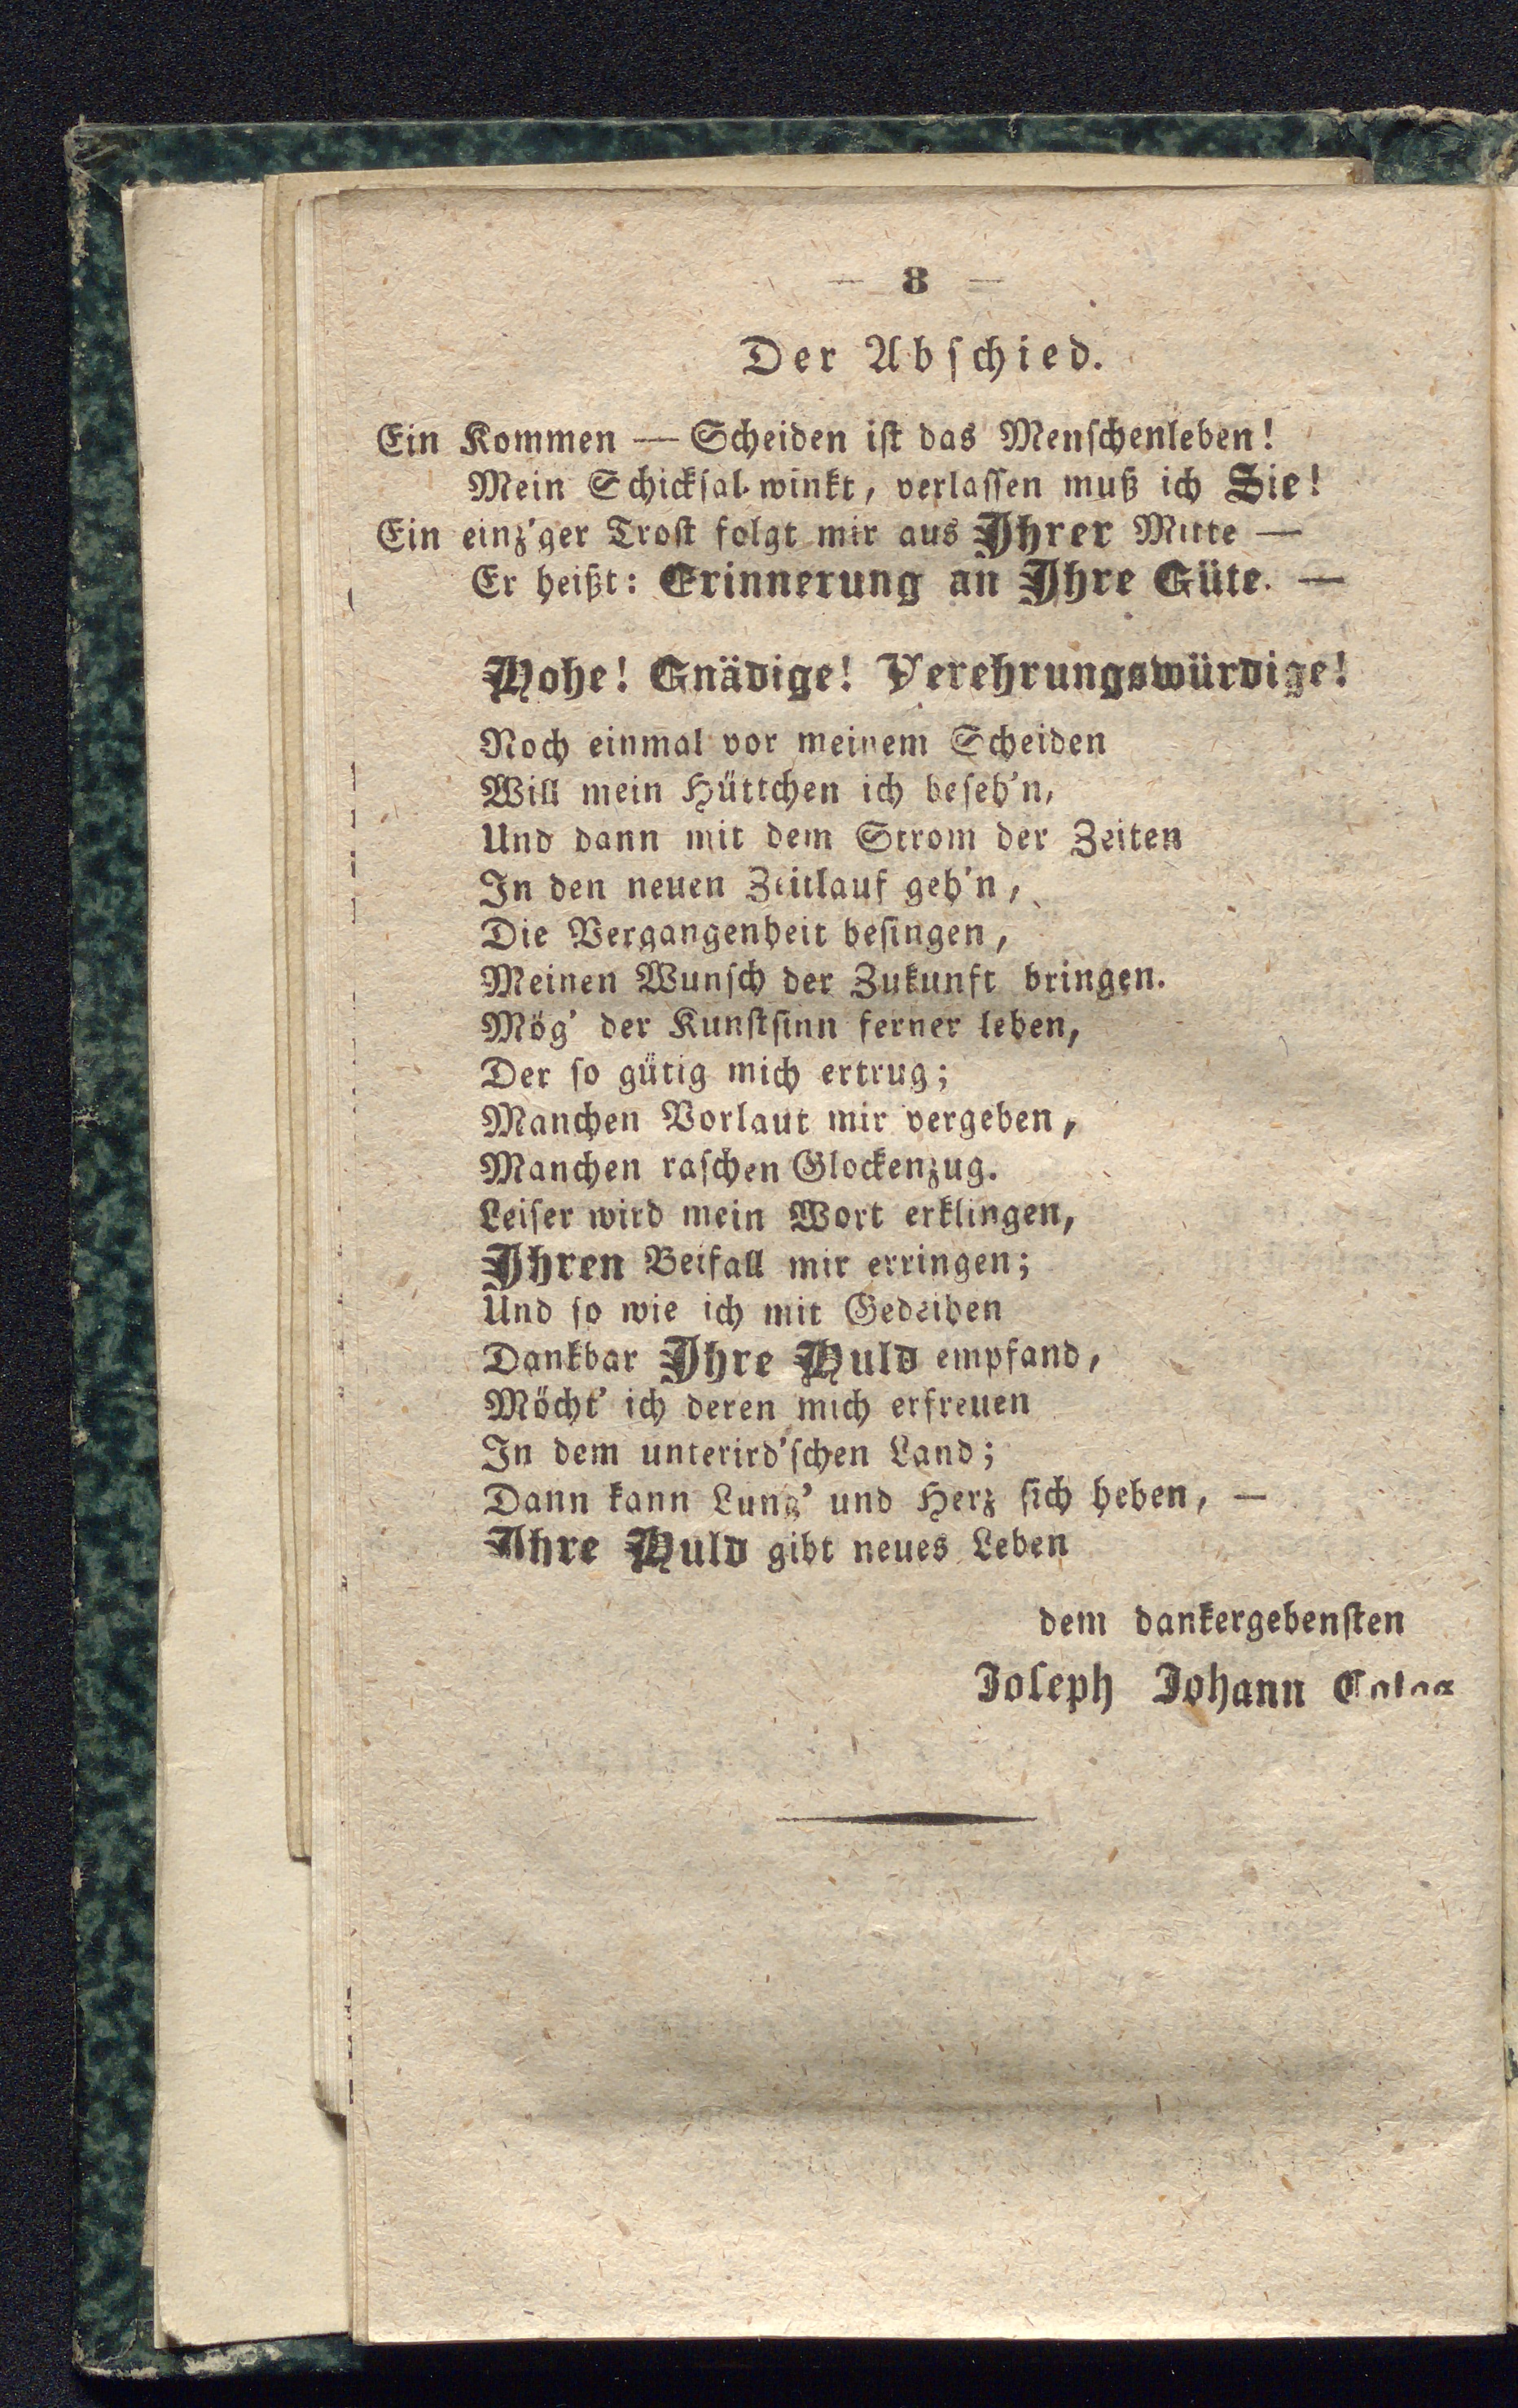 — 8 —
Der Abschied.
Ein Kommen — Scheiden ist das Menschenleben!
Mein Schicksal winkt, verlassen muß ich Sie!
Ein einz'ger Trost folgt mir aus Ihrer Mitte —
Er heißt: Erinnerung an Ihre Güte. —
Hohe! Gnädige! Verehrungswürdige!
Noch einmal vor meinem Scheiden
Will mein Hüttchen ich beseh'n,
Und dann mit dem Strom der Zeiten
In den neuen Zeitlauf geh'n,
Die Vergangenheit besingen,
Meinen Wunsch der Zukunft bringen.
Mög' der Kunstsinn ferner leben,
Der so gütig mich ertrug;
Manchen Vorlaut mir vergeben,
Manchen raschen Glockenzug.
Leiser wird mein Wort erklingen,
Ihren Beifall mir erringen;
Und so wie ich mit Gedeihen
Dankbar Ihre Huld empfand,
Möcht' ich deren mich erfreuen
In dem unterird'schen Land;
Dann kann Lung' und Herz sich heben, —
Ihre Huld gibt neues Leben
dem dankergebensten
Joseph Johann